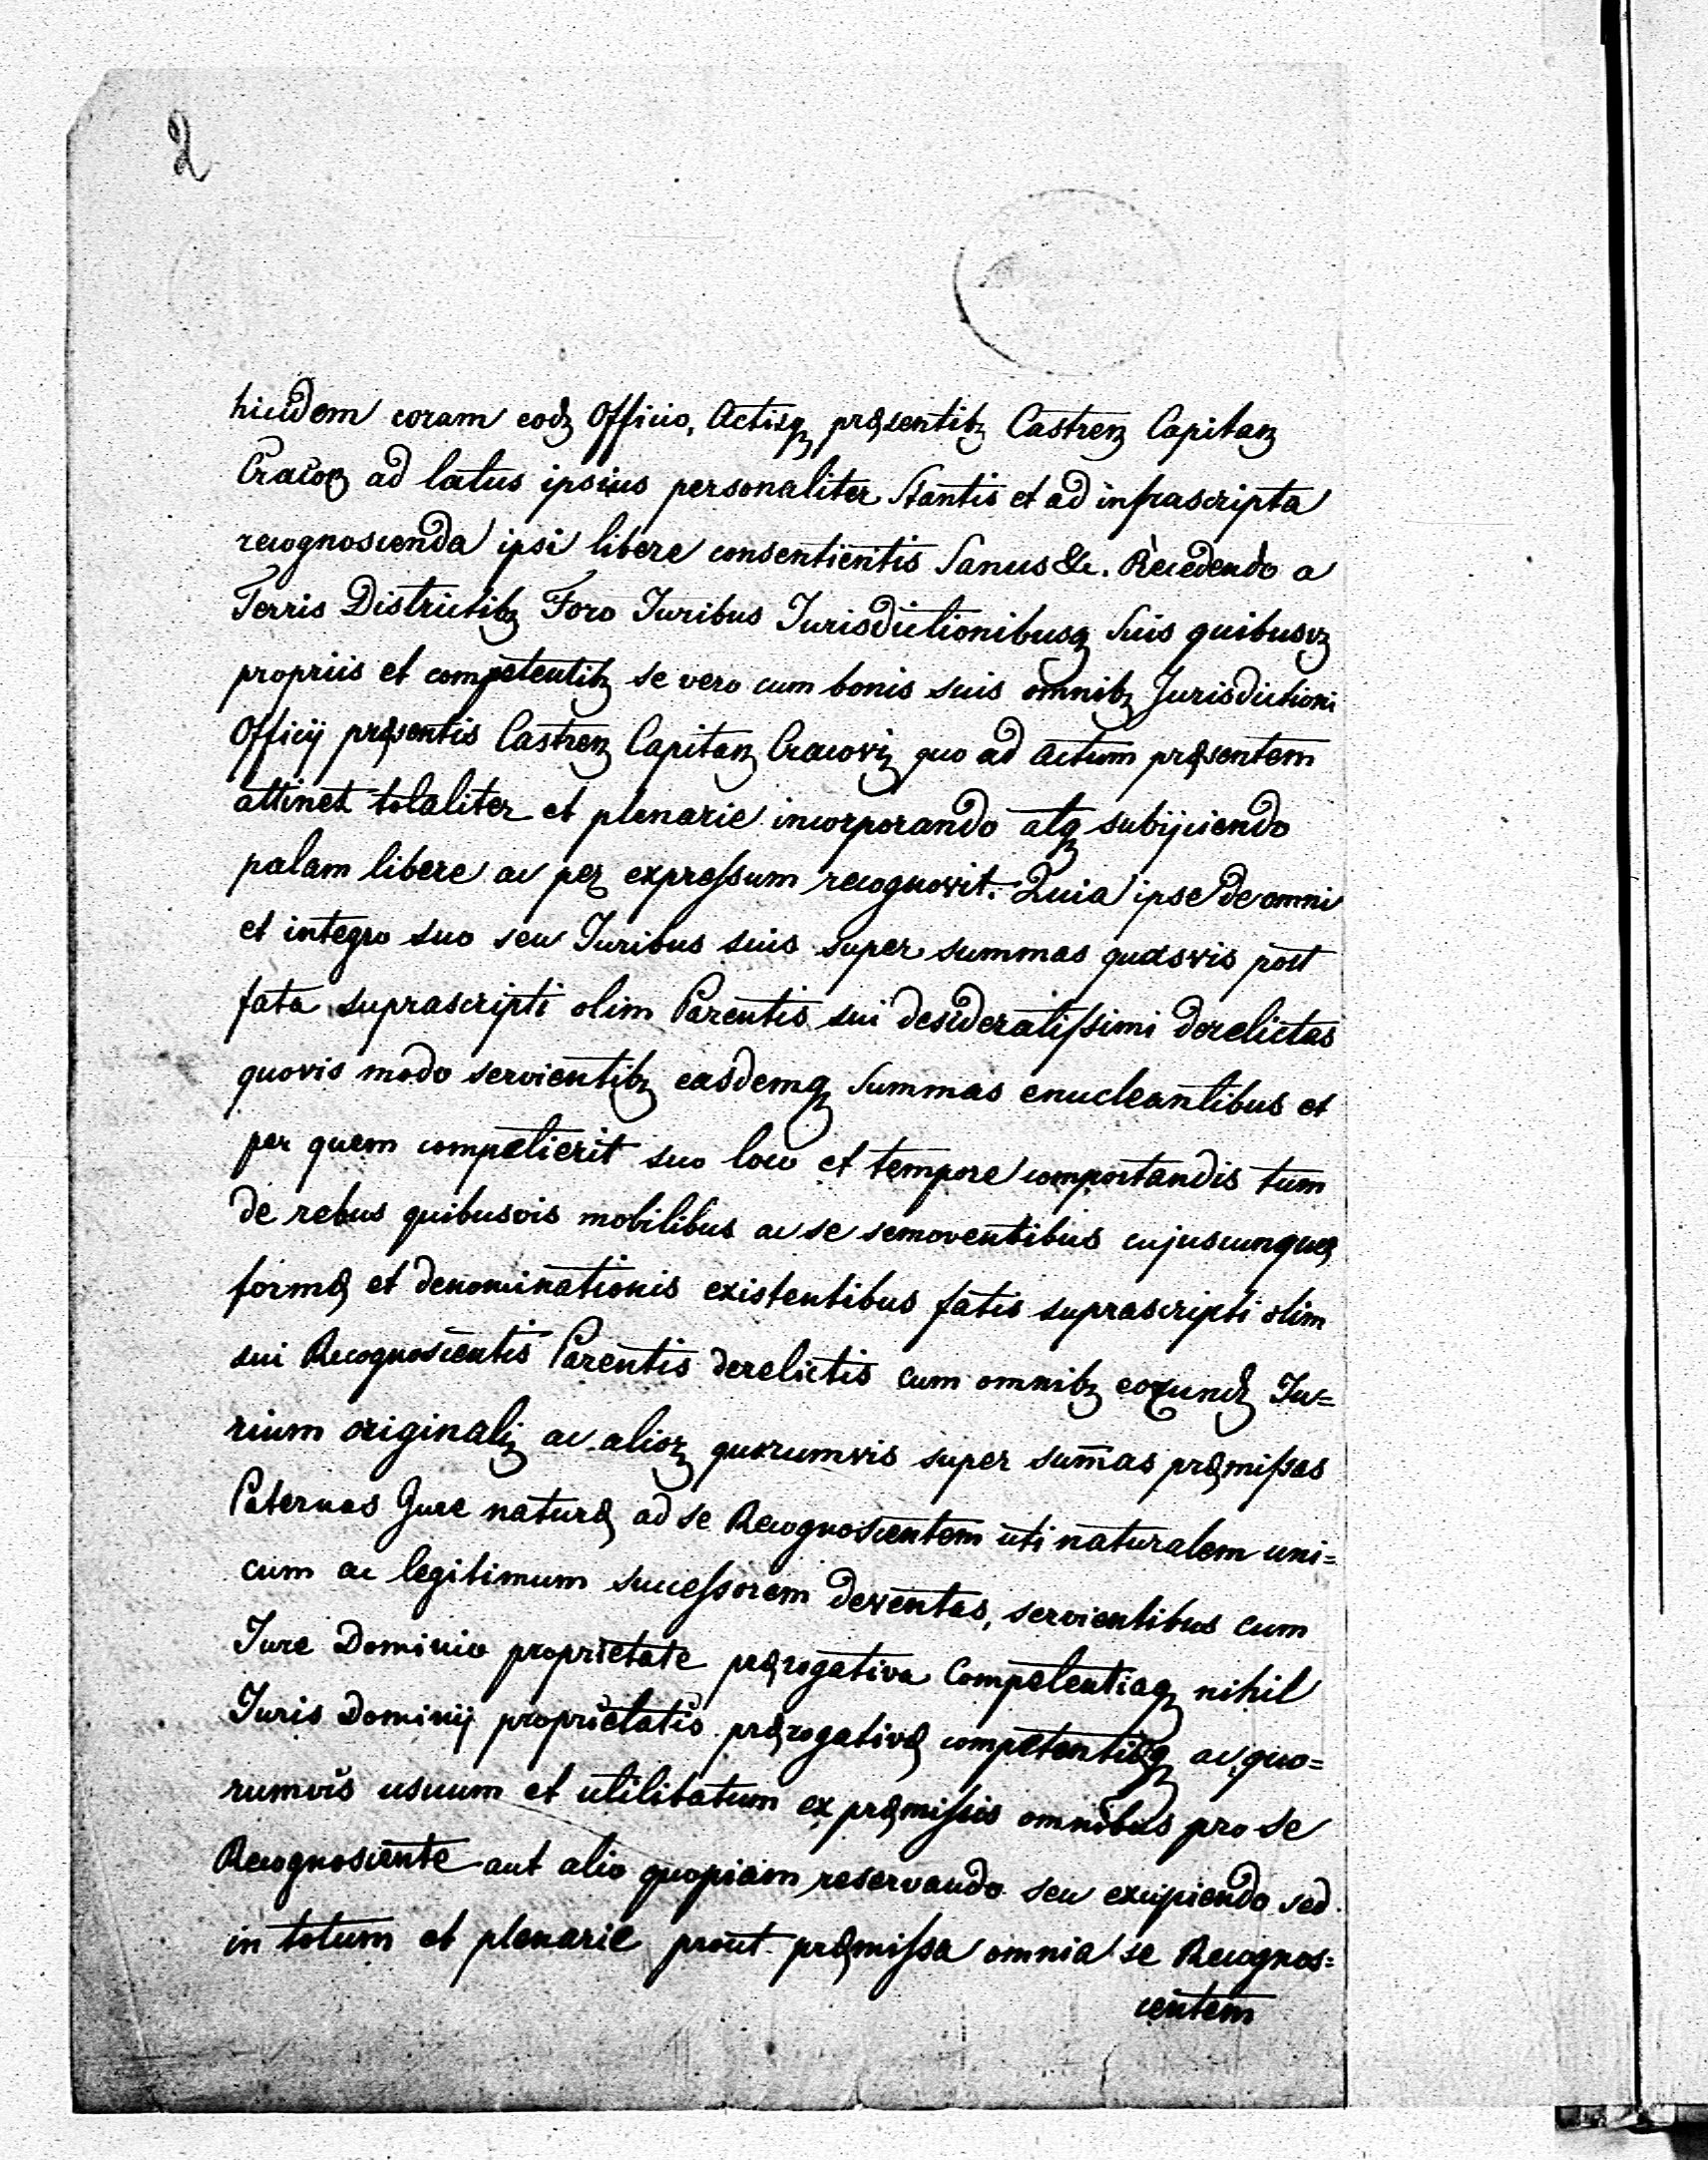 2
hicidem coram eodȝ Officio, Actisqȝ præsentibȝ Castrenȝ Capitanȝ
Cracovȝ ad latus ipsius personaliter Stantis et ad infrascripta
recognoscenda ipsi libere consentientis Sanus &c. Recedendo a
Terris Districtibȝ Foro Iuribus Iurisdictionibusqȝ Suis quibusvȝ
propriis et competentibȝ se vero cum bonis suis omnibȝ Jurisdictioni
Officij præsentis Castrenȝ Capitanȝ Cracoviȝ quo ad Actum præsentem
attinet totaliter et plenarie incorporando atqȝ subijciendo
palam libere ac per expressum recognovit. Quia ipse de omni
et integro suo seu Iuribus suis super summas quasvis post
fata suprascripti olim Parentis sui desideratissimi derelictas
quovis modo servientibȝ easdemqȝ Summas enucleantibus et
per quem competierit suo loco et tempore comportandis tum
de rebus quibusvis mobilibus ac se semoventibus cujuscunquæ
formæ et denominationis existentibus fatis suprascripti olim
sui Recognoscentis Parentis derelictis cum omnibȝ eorundȝ Iu=
rium originaliȝ ac aliorȝ quorumvis super sum̄as præmissas
Paternas Jure naturæ ad se Recognoscentem uti naturalem uni=
cum ac legitimum successorem deventas, servientibus cum
Iure Dominio proprietate prærogativa Competentiaqȝ nihil
Iuris Dominij proprietatis prærogativæ competentiæqȝ ac quo=
rumvis usuum et utilitatum ex præmissis omnibus pro se
Recognoscente aut alio quopiam reservando seu excipiendo sed
in totum et plenarie prout præmissa omnia se Recognos=
centem